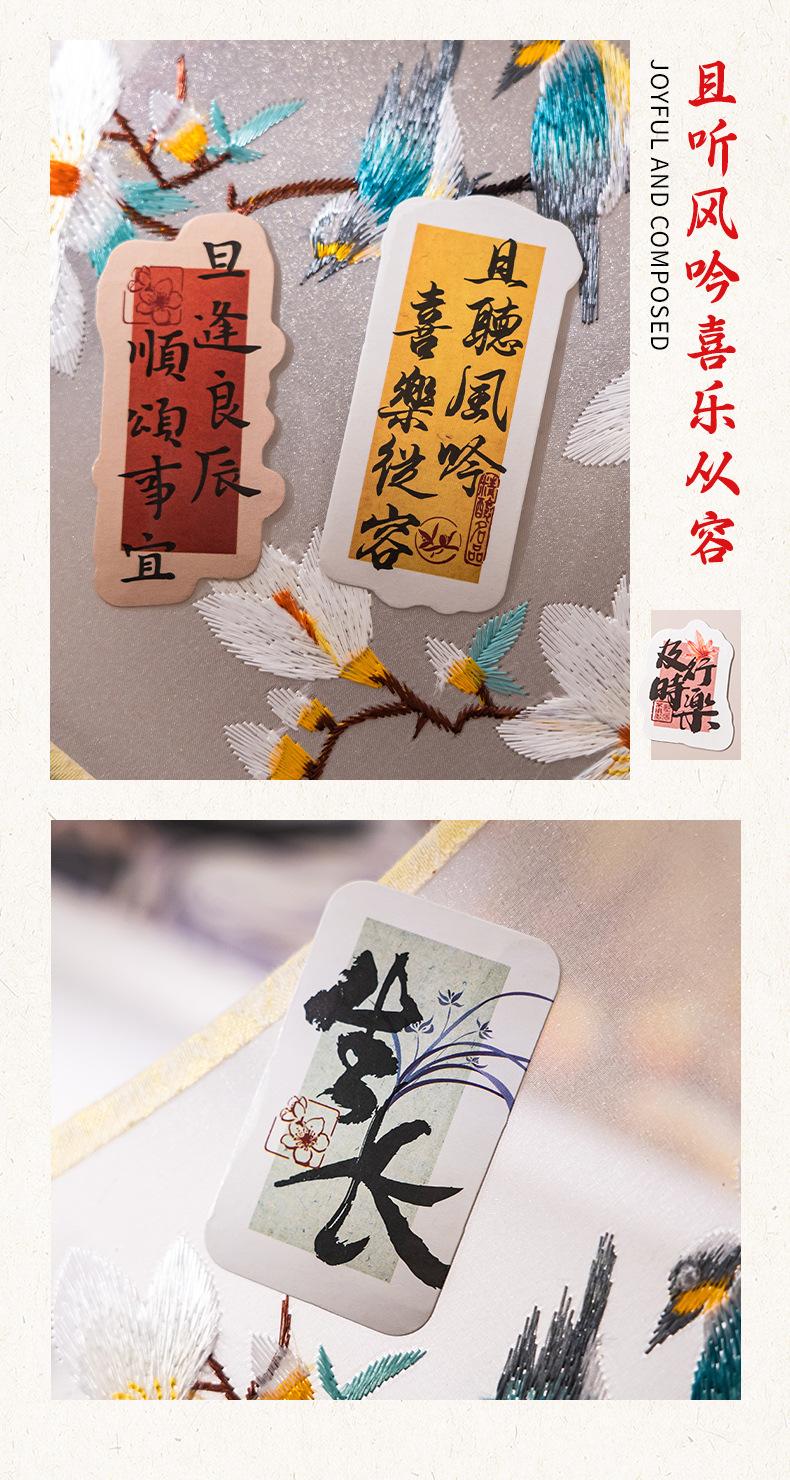 且听风吟喜乐从容
JOYFUL AND COMPOSED
旦逢良辰
順頌事宜
且聽風吟
喜樂從容
精釀名品
及時
行樂
生长